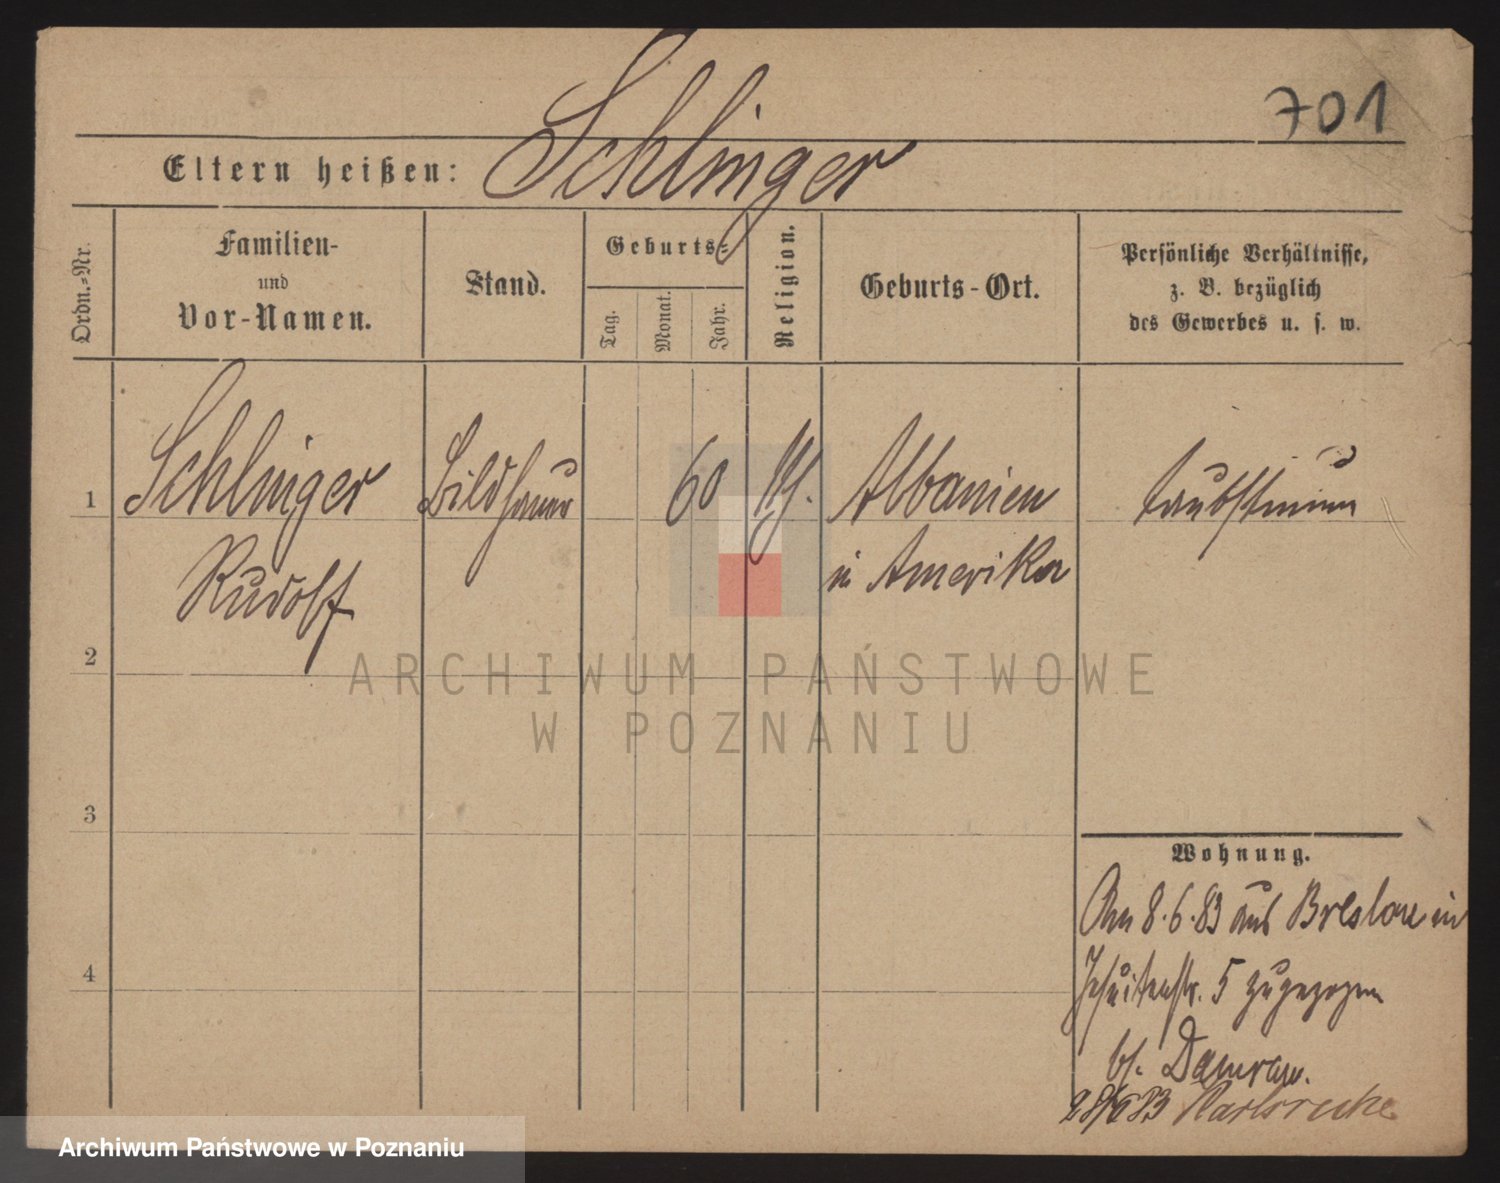 701
Eltern heißen: Schlinger
Ordn.-Nr.
Familien-
und
Vor-Namen.
Stand.
Geburts-
Tag.
Monat.
Jahr.
Religion.
Geburts-Ort.
Persönliche Verhältnisse,
z. B. bezüglich
des Gewerbes u. s. w.
1
Schlinger
Rudolf
Bildhauer
60
Albanien
in Amerika
taubstumm
2
3
4
ARCHIWUM PAŃSTWOWE
W POZNANIU
Wohnung.
Am 8.6.83 aus Breslau in
Jesuitenstr. 5 zugezogen
bs. Damrau.
28/6 83 Karlsruhe
Archiwum Państwowe w Poznaniu